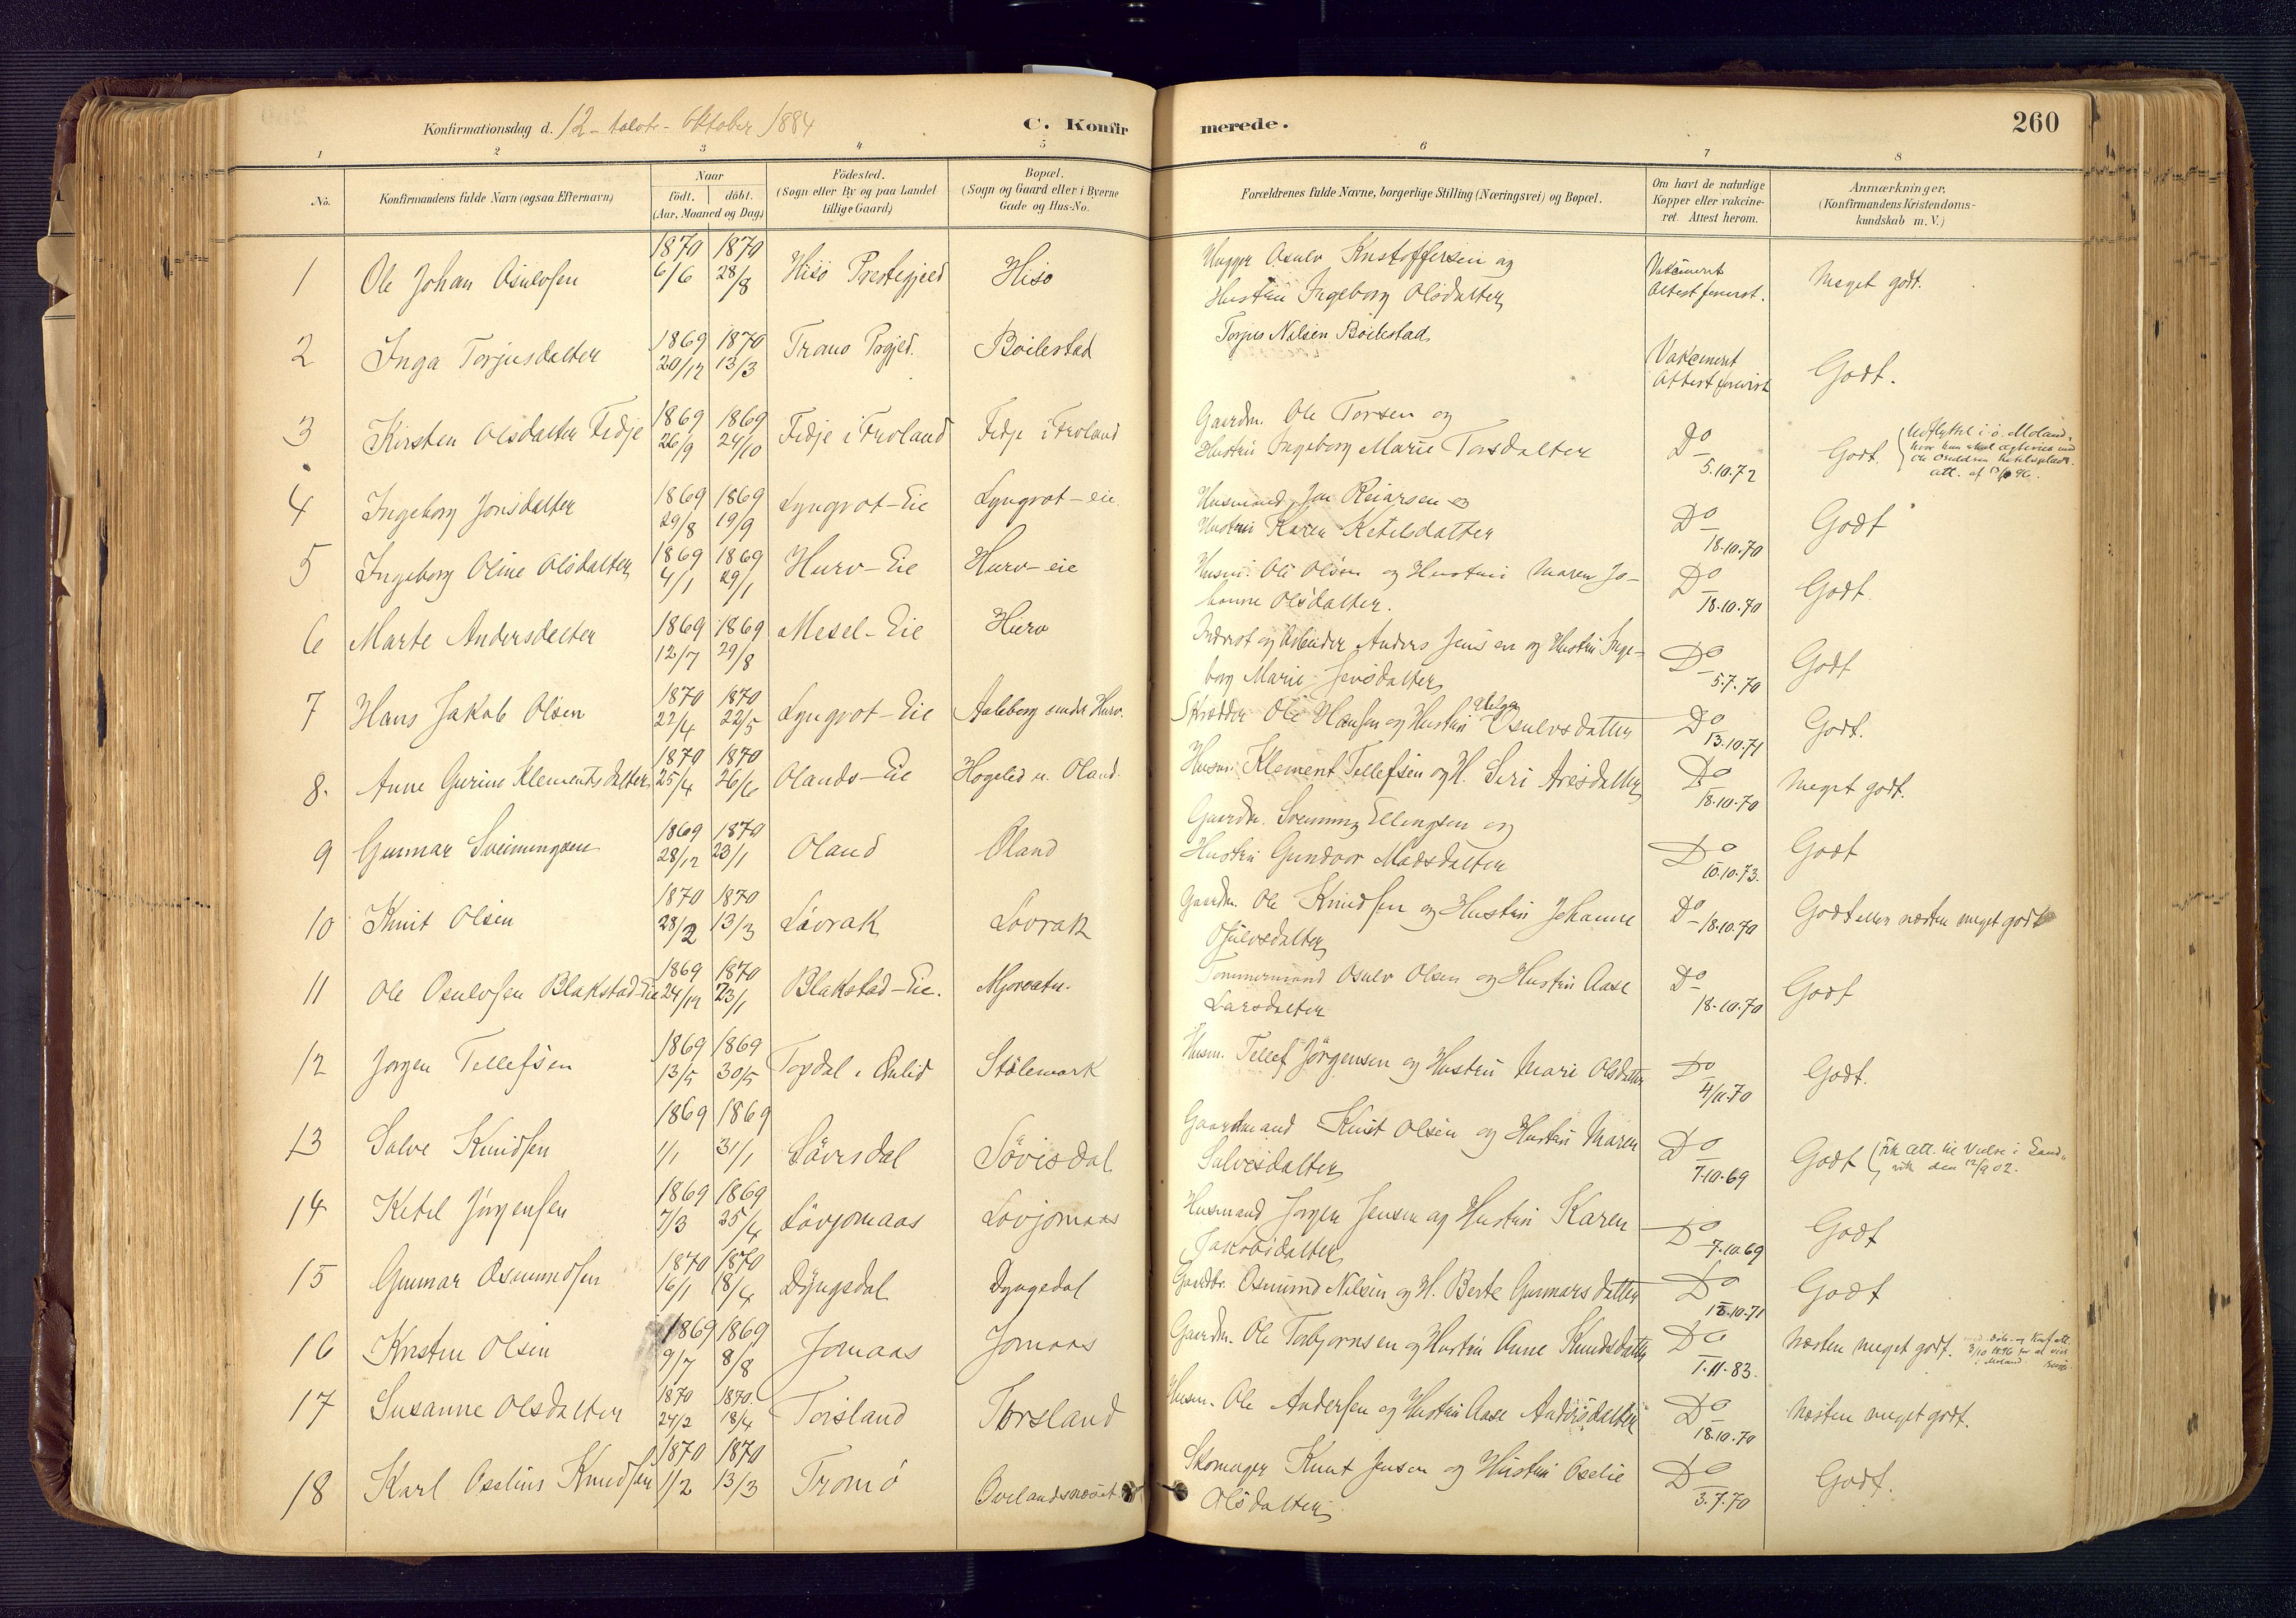 Konfirmationsdag d. 12 - tolvte - Oktober 1884
C. Konfirmerede.
260
1 2 3 4 5 6 7 8
No.
Konfirmandens fulde Navn (ogsaa Efternavn)
Naar
födt. döbt.
(Aar, Maaned og Dag)
Födested.
(Sogn eller By og paa Landet
tillige Gaard)
Bopæl.
(Sogn og Gaard eller i Byerne
Gade og Hus-No.
Forældrenes fulde Navne, borgerlige Stilling (Næringsvei) og Bopæl.
Om havt de naturlige
Kopper eller vakcine-
ret. Attest herom.
Anmærkninger.
(Konfirmandens Kristendoms-
kundskab m. V.)
1 Ole Johan Osulvsen 1870 6/6 1870 28/8 Hisö Prestegjeld Hisö
Osulv Kristoffersen og
Hustru Ingeborg Olsdatter
Vakcineret
Attest forevist.
Meget godt.
2 Inga Terjusdatter 1869 20/12 1870 13/3 Tromö Boilestad
Terjus Nilsen Boilestad
Vakcineret
Attest forevist
Godt.
3 Kirsten Olsdatter Fedje 1869 26/9 1869 24/10 Fedje i Froland Fedje i Froland
Gaardm. Ole Torsen og
Hustru Ingeborg Marie Torsdatter
Do 5.10.72
Godt.
Udflyttet i ö. Moland,
4 Ingeborg Jonsdatter 1869 29/8 1869 19/9 Lyngrot-Eie Lyngrot-eie
Husmand Jon Reiarsen og
Hustru Karen Ketelsdatter
Do 18.10.70
Godt
5 Ingeborg Oline Olsdatter 1869 4/1 1869 29/1 Hurv-Eie Hurv-eie
Husm. Ole Olsen og Hustru Maren Jo-
hanne Olsdatter.
Do 18.10.70
Godt.
6 Marte Andersdatter 1869 12/7 1869 29/8 Mesel-Eie Hurv
Inderst og Arbeider Anders Jensen og Hustru Inge-
borg Marie Jensdatter
Do 5.7.70
Godt
7 Hans Jakob Olsen 1870 22/4 1870 22/5 Lyngrot-Eie Aaleborg under Hurv.
Skrædder Ole Hansen og Hustru Helga Osulvsdatter
Do 13.10.71
Godt.
8. Anne Gurine Klementsdatter 1870 25/4 1870 26/6 Olands-Eie Hogelid u. Oland.
Husm. Klement Tellefsen og H. Siri Aresdatter
Do 18.10.70
Meget godt.
9 Gunnar Sveinungsen 1869 28/12 1870 23/1 Oland Oland
Gaardm. Sveinung Ellingsen og
Hustru Gundvor Madsdatter
Do 10.10.73.
Godt
10 Knut Olsen 1870 28/2 1870 13/3 Lövrak Lovrak
Gaardm. Ole Knudsen og Hustru Johanne
Osulvsdatter
Do 18.10.70
Godt eller næsten meget godt
11 Ole Osulvsen Blakstad-Eie 1869 24/12 1870 23/1 Blakstad-Eie. Mjovatn.
Tømmermand Osulv Olsen og Hustru Aase
Larsdatter
Do 18.10.70
Godt
12 Jorgen Tellefsen 1869 13/5 1869 30/5 Topdal i Stölemark
Husm. Tellef Jörgensen og Hustru Mari Olsdatter
Do 4/11.70
Godt.
13 Salve Knudsen 1869 1/1 1869 31/1 Sövisdal Sövisdal
Gaardmand Knut Olsen og Hustru Maren
Salvesdatter
Do 7.10.69
Godt
14 Ketel Jörgensen 1869 7/3 1869 25/4 Lövjomaas Lovjomaas
Husmand Jorgen Jensen og Hustru Karen
Jakobsdatter
Do 7.10.69
Godt
15 Gunnar Osmundsen 1870 16/1 1870 18/4 Dyngedal Dyngedal
Gaardbr. Osmund Nilsen og H. Berte Gunnarsdatter
Do 18.10.71
Godt
16 Kirsten Olsen 1869 9/7 1869 8/8 Jomaas Jomaas
Gaardm. Ole Torbjornsen og Hustru Anne Knudsdatter
Do 1.11.83.
Næsten meget godt.
17 Susanne Olsdatter 1870 24/2 1870. 18/4 Torsland Torsland
Husm. Ole Andersen og Hustru Aase Andersdatter
Do 18.10.70
Næsten meget godt.
18 Karl Oselius Knudsen 1870 1/2 1870 13/3 Tromö Ovelandsnæset
Skomager Knut Jensen og Hustru Oselie
Olsdatter
Do 3.7.70
Godt.